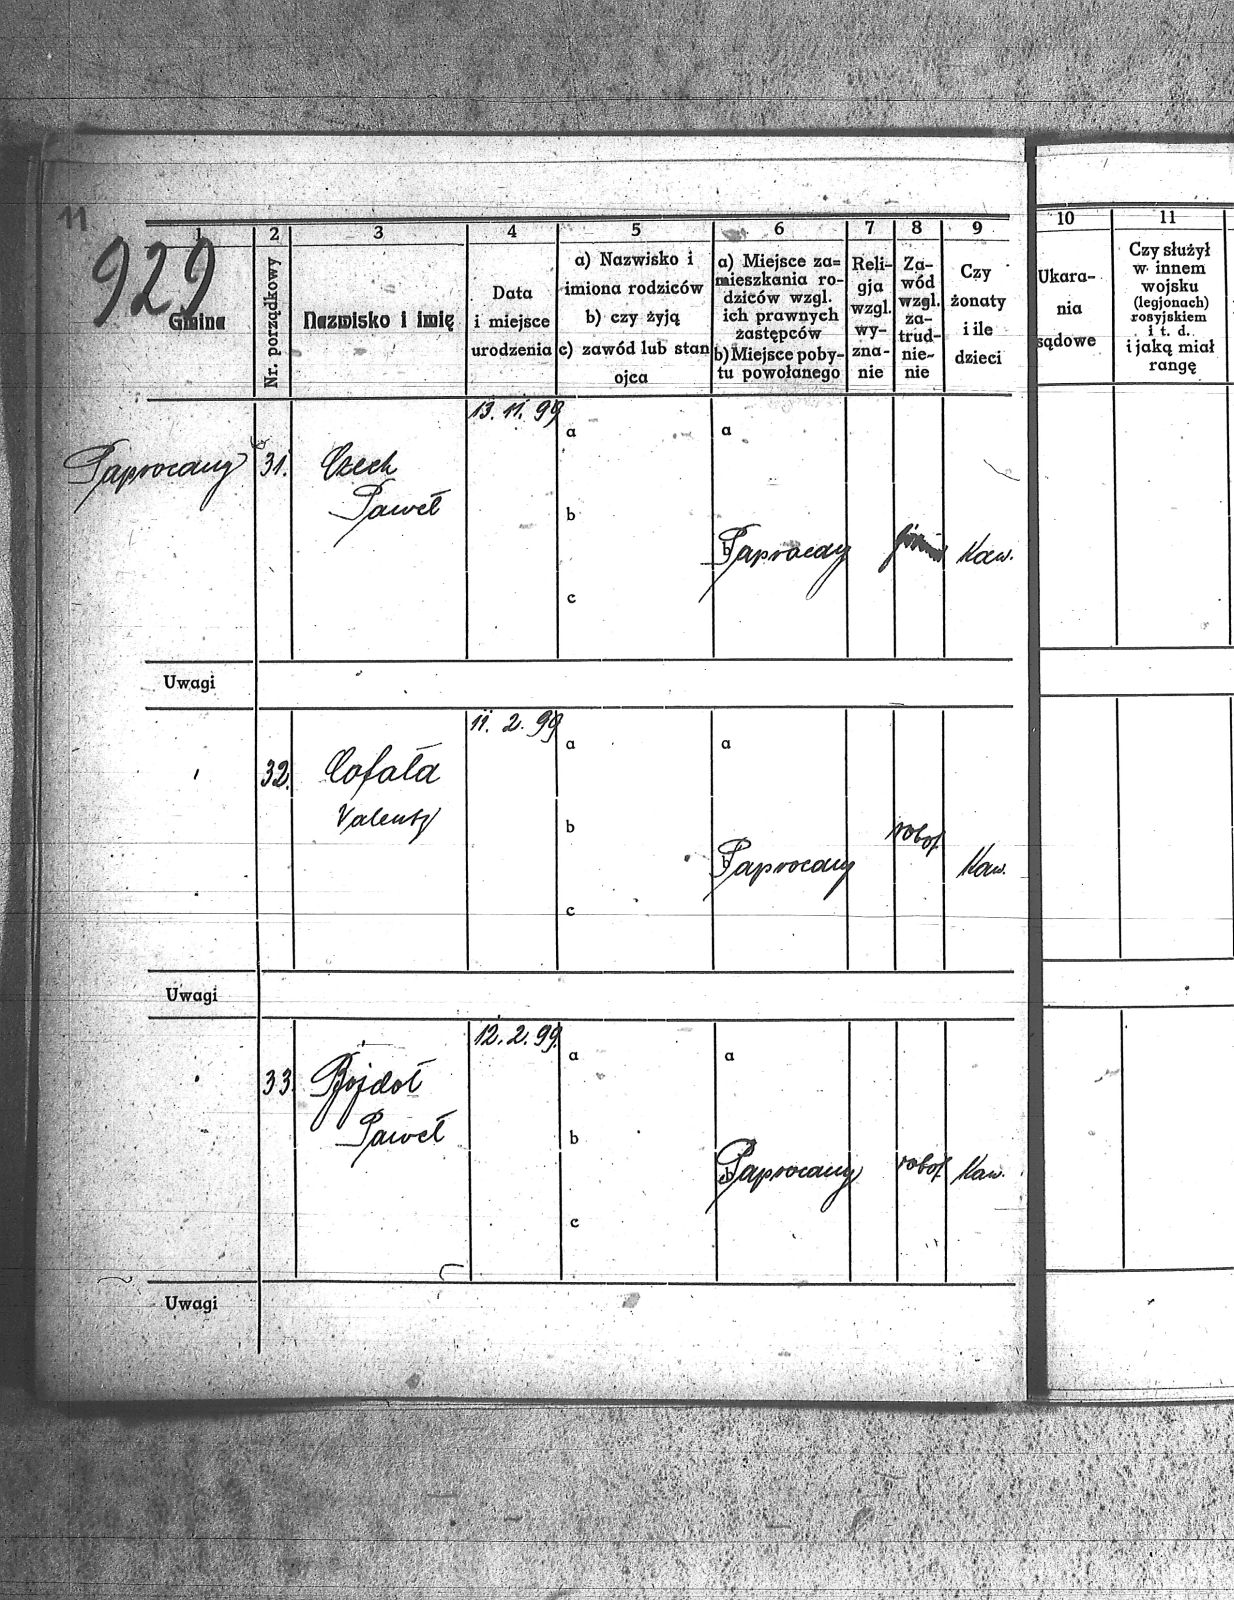 11
929
1 2 3 4 5 6 7 8 9 10 11
Gmina
Nr. porządkowy
Nazwisko i imię
Data
i miejsce
urodzenia
a) Nazwisko i
imiona rodziców
b) czy żyją
c) zawód lub stan
ojca
a) Miejsce za=
mieszkania ro-
dziców wzgl.
ich prawnych
zastępców
b) Miejsce poby-
tu powołanego
Reli-
gja
wzgl.
wy-
zna-
nie
Za-
wód
wzgl.
za-
trud-
nie-
nie
Czy
żonaty
i ile
dzieci
Ukara-
nia
sądowe
Czy służył
w innem
wojsku
(legjonach)
rosyjskiem
i t. d.
i jaką miał
rangę
13. 11. 99
a a
Paprocany 31. Czech
Paweł
b
b Paprocany Kaw.
c
Uwagi
11. 2. 99
a a
32. Cofała
Valenty
b robot.
b Paprocany Kaw.
c
Uwagi
12. 2. 99.
a a
33 Bojdoł
Paweł
b
b Paprocany robot. Kaw.
c
Uwagi